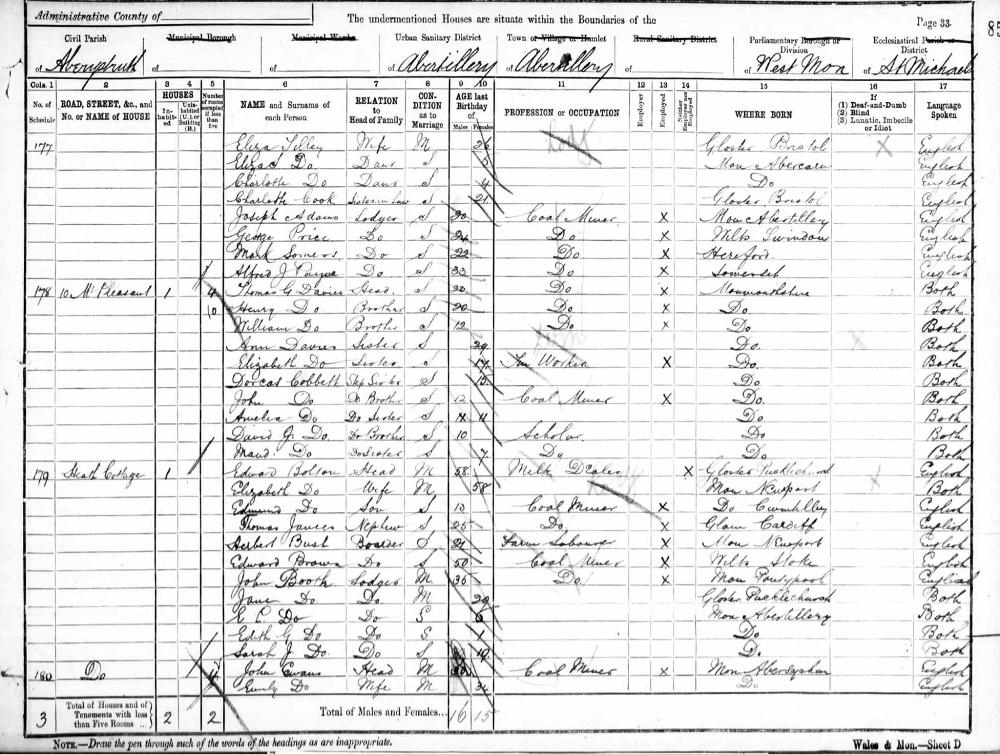 Administrative County of
The undermentioned Houses are situate within the Boundaries of the
Page 33
85
Civil Parish
Municipal Borough
Municipal Ward
Urban Sanitary District
Town or Village or Hamlet
Rural Sanitary District
Parliamentary Borough or Division
Ecclesiastical Parish or District
of Aberystruth of of of Abertillery of Abertillery of of West Mon of St Michaels
Cols. 1 2 3 4 5 6 7 8 9 10 11 12 13 14 15 16 17
No. of Schedule
ROAD, STREET, &c., and No. or NAME of HOUSE
HOUSES
Inhabited
Uninhabited (U.) or Building (B.)
Number of rooms occupied if less than five
NAME and Surname of each Person
RELATION to Head of Family
CONDITION as to Marriage
AGE last Birthday of
Males Females
PROFESSION or OCCUPATION
Employer
Employed
Neither Employer nor Employed
WHERE BORN
If (1) Deaf-and-Dumb (2) Blind (3) Lunatic, Imbecile or Idiot
Language Spoken
177 Eliza Tilley Wife M 26 Gloster Bristol English
Eliza S Do Daur S 5 Mon Abercarn English
Charlotte Do Daur S 4 Do English
Charlotte Cook Sister in Law S 21 Gloster Bristol English
Joseph Adams Lodger S 20 Coal Miner X Mon Abertillery English
George Price Do S 24 Do X Wilts Swindon English
Mark Somers Do S 22 Do X Hereford English
Alfred J Payne Do S 33 Do X Somerset English
178 10 Mt Pleasant 1 4 Thomas G Davies Head S 20 Do X Monmouthshire Both
10 Henry Do Brother S 20 Do X Do Both
William Do Brother S 12 Do X Do Both
Ann Davies Sister S 29 Do Both
Elizabeth Do Sister S 17 Tin Worker X Do Both
Dorcas Cobbett Step Sister S 15 Do Both
John Do Do Brother S 12 Coal Miner X Do Both
Amelia Do Do Sister S 11 Do Both
David J. Do Do Brother S 10 Scholar Do Both
Maud Do Do Sister S 7 Do Do Both
179 Heath Cottage 1 Edward Bolson Head M 58 Milk Dealer X Gloster Pucklechurch English
Elizabeth Do Wife M 58 Mon Newport Both
Edmund Do Son S 13 Coal Miner X Do Cwmtillery English
Thomas James Nephew S 25 Do X Glam Cardiff English
Herbert Bush Boarder S 24 Farm Labourer X Mon Newport English
Edward Brown Do S 50 Coal Miner X Wilts Stoke English
John Booth Lodger M 35 Do X Mon Pontypool English
Jane Do Do M 29 Gloster Pucklechurch Both
E E Do Do S 6 Mon Abertillery Both
Edith G Do Do S 1 Do Both
Sarah J Do Do S 19 Do Both
180 Do 4 John Evans Head M Coal Miner X Mon English
Emily Do Wife M 34 Do English
3 Total of Houses and of Tenements with less than Five Rooms ... 2 2 Total of Males and Females... 16 15
NOTE.—Draw the pen through such of the words of the headings as are inappropriate.
Wales & Mon.—Sheet D